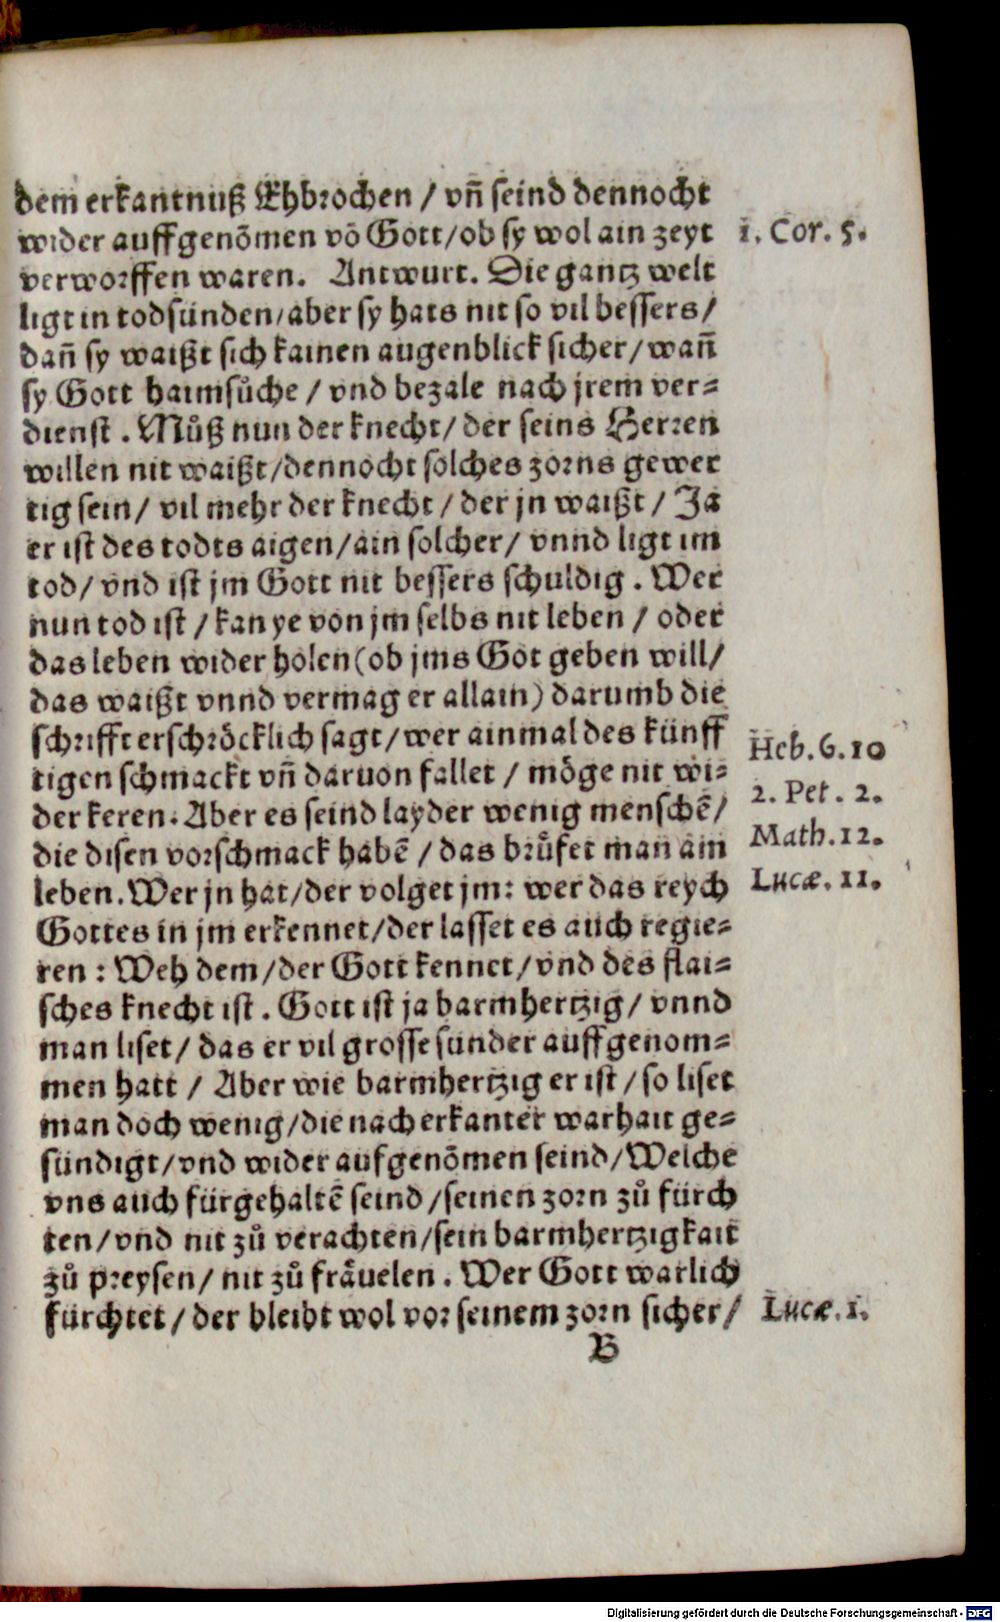 dem erkantnuß Ehbrochen / vñ seind dennocht
wider auffgenõmen võ Gott/ob sy wol ain zeyt
1. Cor. 5.
verworffen waren. Antwurt. Die gantz welt
ligt in todsünden/aber sy hats nit so vil bessers/
dañ sy waißt sich kainen augenblick sicher/wañ
sy Gott haimsůche / vnd bezale nach jrem ver=
dienst . Můß nun der knecht/ der seins Herren
willen nit waißt/dennocht solches zorns gewer
tig sein/ vil mehr der knecht / der jn waißt / Ja
er ist des todts aigen/ain solcher/ vnnd ligt im
tod/ vnd ist jm Gott nit bessers schuldig . Wer
nun tod ist / kan ye von jm selbs nit leben / oder
das leben wider holen (ob jms Got geben will/
das waißt vnnd vermag er allain) darumb die
schrifft erschröcklich sagt/wer ainmal des künff
Heb. 6. 10
tigen schmackt vñ daruon fallet / möge nit wi=
2. Pet. 2.
der keren. Aber es seind layder wenig menschẽ/
Math. 12.
die disen vorschmack habẽ / das brůfet man am
Lucæ. 11.
leben. Wer jn hat/der volget jm: wer das reych
Gottes in jm erkennet/der lasset es auch regie=
ren : Weh dem/der Gott kennet/vnd des flai=
sches knecht ist . Gott ist ja barmhertzig/ vnnd
man liset/ das er vil grosse sünder auffgenom=
men hatt / Aber wie barmhertzig er ist / so liset
man doch wenig/die nach erkanter warhait ge=
sündigt/vnd wider aufgenõmen seind/Welche
vns auch fürgehaltẽ seind /seinen zorn zů fürch
ten/vnd nit zů verachten/sein barmhertzigkait
zů preysen/ nit zů fräuelen . Wer Gott warlich
fürchtet / der bleibt wol vor seinem zorn sicher/
Lucæ. 1.
B
Digitalisierung gefördert durch die Deutsche Forschungsgemeinschaft - DFG